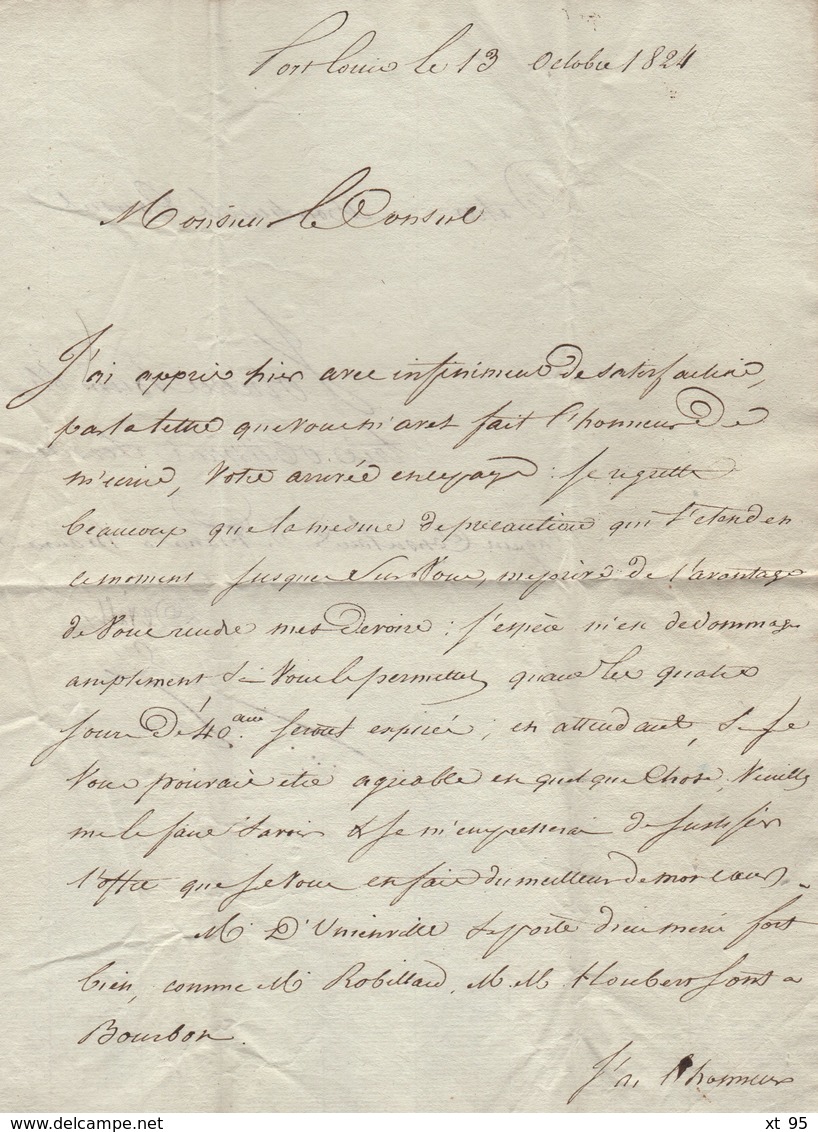 Port Louis le 13 Octobre 1824
Monsieur le Consul
J'ai appris hier avec infiniment de satisfaction,
par la lettre que vous m'avez fait l'honneur de
m'ecrire, votre arrivée en ce pays : je regrette
beaucoup que la mesure de précaution qui s'etend en
ce moment jusques sur vous, me prive de l'avantage
de vous rendre mes devoirs : j'espère m'en dedommager
amplement si vous le permettez quand les quatre
jours de 40.aine seront expirés ; en attendant, si je
vous pouvais etre agréable en quelque chose, veuillez
me le faire savoir & je m'empresserai de justifier
l'offre que je vous en fais du meilleur de mon cœur.
Mr D'Unienville se porte dieu merci fort
bien, comme Mr Robillard. M.M. Houbert sont a
Bourbon.
J'ai l'honneur
xt 95